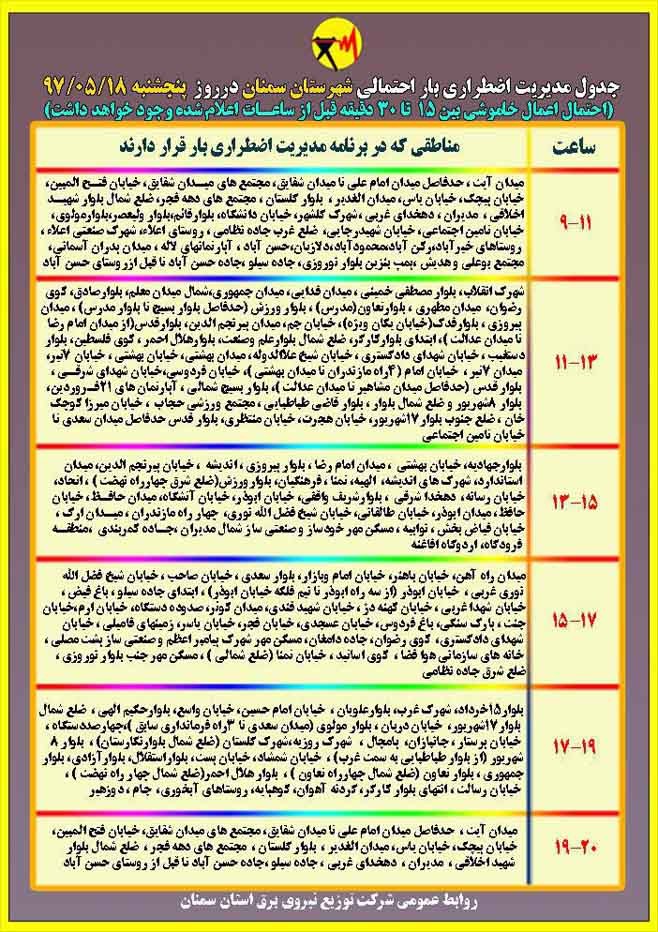 جدول مدیریت اضطراری بار احتمالی شهرستان سمنان درروز پنجشنبه ۹۷/۰۵/۱۸
(احتمال اعمال خاموشی بین ۱۵ تا ۳۰ دقیقه قبل از ساعات اعلام شده وجود خواهد داشت)
ساعت
مناطقی که در برنامه مدیریت اضطراری بار قرار دارند
۹-۱۱
میدان آیت ، حدفاصل میدان امام علی تا میدان شقایق، مجتمع های میدان شقایق، خیابان فتح المبین،
خیابان پیچک، خیابان یاس، میدان الغدیر ، بلوار گلستان ، مجتمع های دهه فجر، ضلع شمال بلوار شهید
اخلاقی ، مدیران ، دهخدای غربی، شهرک گلشهر، خیابان دانشگاه، بلوارقائم،بلوار ولیعصر،بلوارمولوی،
خیابان تامین اجتماعی، خیابان شهیدرجایی، ضلع غرب جاده نظامی ، روستای اعلاء، شهرک صنعتی اعلاء،
روستاهای خیرآباد،رکن آباد،محمودآباد،دلازیان،حسن آباد ، آپارتمانهای لاله ، میدان پدران آسمانی،
مجتمع بوعلی و هدیش ،پمپ بنزین بلوار نوروزی، جاده سیلو ،جاده حسن آباد تا قبل ازروستای حسن آباد
۱۱-۱۳
شهرک انقلاب، بلوار مصطفی خمینی ، میدان فدایی، میدان جمهوری،شمال میدان معلم، بلوارصادق، کوی
رضوان، میدان مطهری ، بلوارتعاون(مدرس) ، بلوار ورزش (حدفاصل بلوار بسیج تا بلوار مدرس) ، میدان
پیروزی ، بلوارفدک(خیابان یگان ویژه)، خیابان جم، میدان پیرنجم الدین، بلوارقدس(از میدان امام رضا
تا میدان عدالت )، ابتدای بلوارکارگر، ضلع شمال بلوارعلم وصنعت، بلوارهلال احمر، کوی فلسطین، بلوار
دستغیب ، خیابان شهدای دادگستری ، خیابان شیخ علاالدوله، میدان بهشتی، خیابان بهشتی ، خیابان ۷تیر،
میدان ۷تیر ، خیابان امام (۴راه مازندران تا میدان بهشتی )، خیابان فردوسی،خیابان شهدای شرقی ،
بلوار قدس (حدفاصل میدان مشاهیر تا میدان عدالت )، بلوار بسیج شمالی ، آپارتمان های ۲۱فروردین،
بلوار ۸شهریور و ضلع شمال بلوار ، بلوار قاضی طباطبایی ، مجتمع ورزشی حجاب ، خیابان میرزا کوچک
خان ، ضلع جنوب بلوار ۱۷شهریور، خیابان هجرت، خیابان منتظری، بلوار قدس حدفاصل میدان سعدی تا
خیابان تامین اجتماعی
۱۳-۱۵
بلوارجهادیه، خیابان بهشتی ، میدان امام رضا ، بلوار پیروزی ، اندیشه ، خیابان پیرنجم الدین، میدان
استاندارد، شهرک های اندیشه، الهیه، تمنا ، فرهنگیان، بلوار ورزش(ضلع شرق چهارراه نهضت ) ، اتحاد،
خیابان رسانه ، دهخدا شرقی ، بلوارشریف واقفی، خیابان ابوذر، خیابان آتشگاه، میدان حافظ، خیابان
حافظ، میدان ابوذر، خیابان طالقانی، خیابان شیخ فضل الله نوری، چهار راه مازندران ، میدان ارک ،
خیابان فیاض بخش ، توابیه ، مسکن مهر خودساز و صنعتی ساز شمال مدیران ،جاده کمربندی ،منطقه
فرودگاه، اردوگاه افاغنه
۱۵-۱۷
میدان راه آهن، خیابان باهنر، خیابان امام وبازار، بلوار سعدی ، خیابان صاحب ، خیابان شیخ فضل الله
نوری غربی ، خیابان ابوذر (از سه راه ابوذر تا نیم فلکه خیابان ابوذر) ، ابتدای جاده سیلو ، باغ فیض ،
خیابان شهدا غربی ، خیابان کهنه دژ ، خیابان شهید قندی، میدان کوثر، صددوه دستگاه، خیابان ارم،خیابان
جنت ، پارک سنگی، باغ فردوس، خیابان عسجدی، خیابان فجر، خیابان یاسر، زمینهای فامیلی، خیابان
شهدای دادگستری، کوی رضوان، جاده دامغان، مسکن مهر شهرک پیامبر اعظم و صنعتی ساز پشت مصلی ،
خانه های سازمانی هوا فضا ، کوی اساتید ، خیابان تمنا (ضلع شمالی ) ، مسکن مهر جنب بلوار نوروزی ،
ضلع شرق جاده نظامی
۱۷-۱۹
بلوار۱۵خرداد، شهرک غرب، بلوارعلویان ، خیابان امام حسین، خیابان واسع، بلوارحکیم الهی ، ضلع شمال
بلوار ۱۷شهریور، خیابان دربان ، بلوار مولوی (میدان سعدی تا ۳راه فرمانداری سابق )،چهارصددستگاه ،
خیابان پرستار ، جانبازان، بامچال ، شهرک روزیه،شهرک گلستان (ضلع شمال بلوارنگارستان) ، بلوار ۸
شهریور (از بلوار طباطبایی به سمت غرب) ، خیابان شمشاد، خیابان پست، بلواراستقلال، بلوارآزادی، بلوار
جمهوری ، بلوار تعاون (ضلع شمال چهارراه تعاون ) ، بلوار هلال احمر(ضلع شمال چهار راه نهضت ) ،
خیابان رسالت ، انتهای بلوار کارگر، کردنه آهوان، کوهپایه، روستاهای آبخوری، جام ، دوزهیر
۱۹-۲۰
میدان آیت ، حدفاصل میدان امام علی تا میدان شقایق، مجتمع های میدان شقایق، خیابان فتح المبین،
خیابان پیچک، خیابان یاس، میدان الغدیر ، بلوار گلستان ، مجتمع های دهه فجر ، ضلع شمال بلوار
شهید اخلاقی ، مدیران ، دهخدای غربی ، جاده سیلو ،جاده حسن آباد تا قبل از روستای حسن آباد
روابط عمومی شرکت توزیع نیروی برق استان سمنان